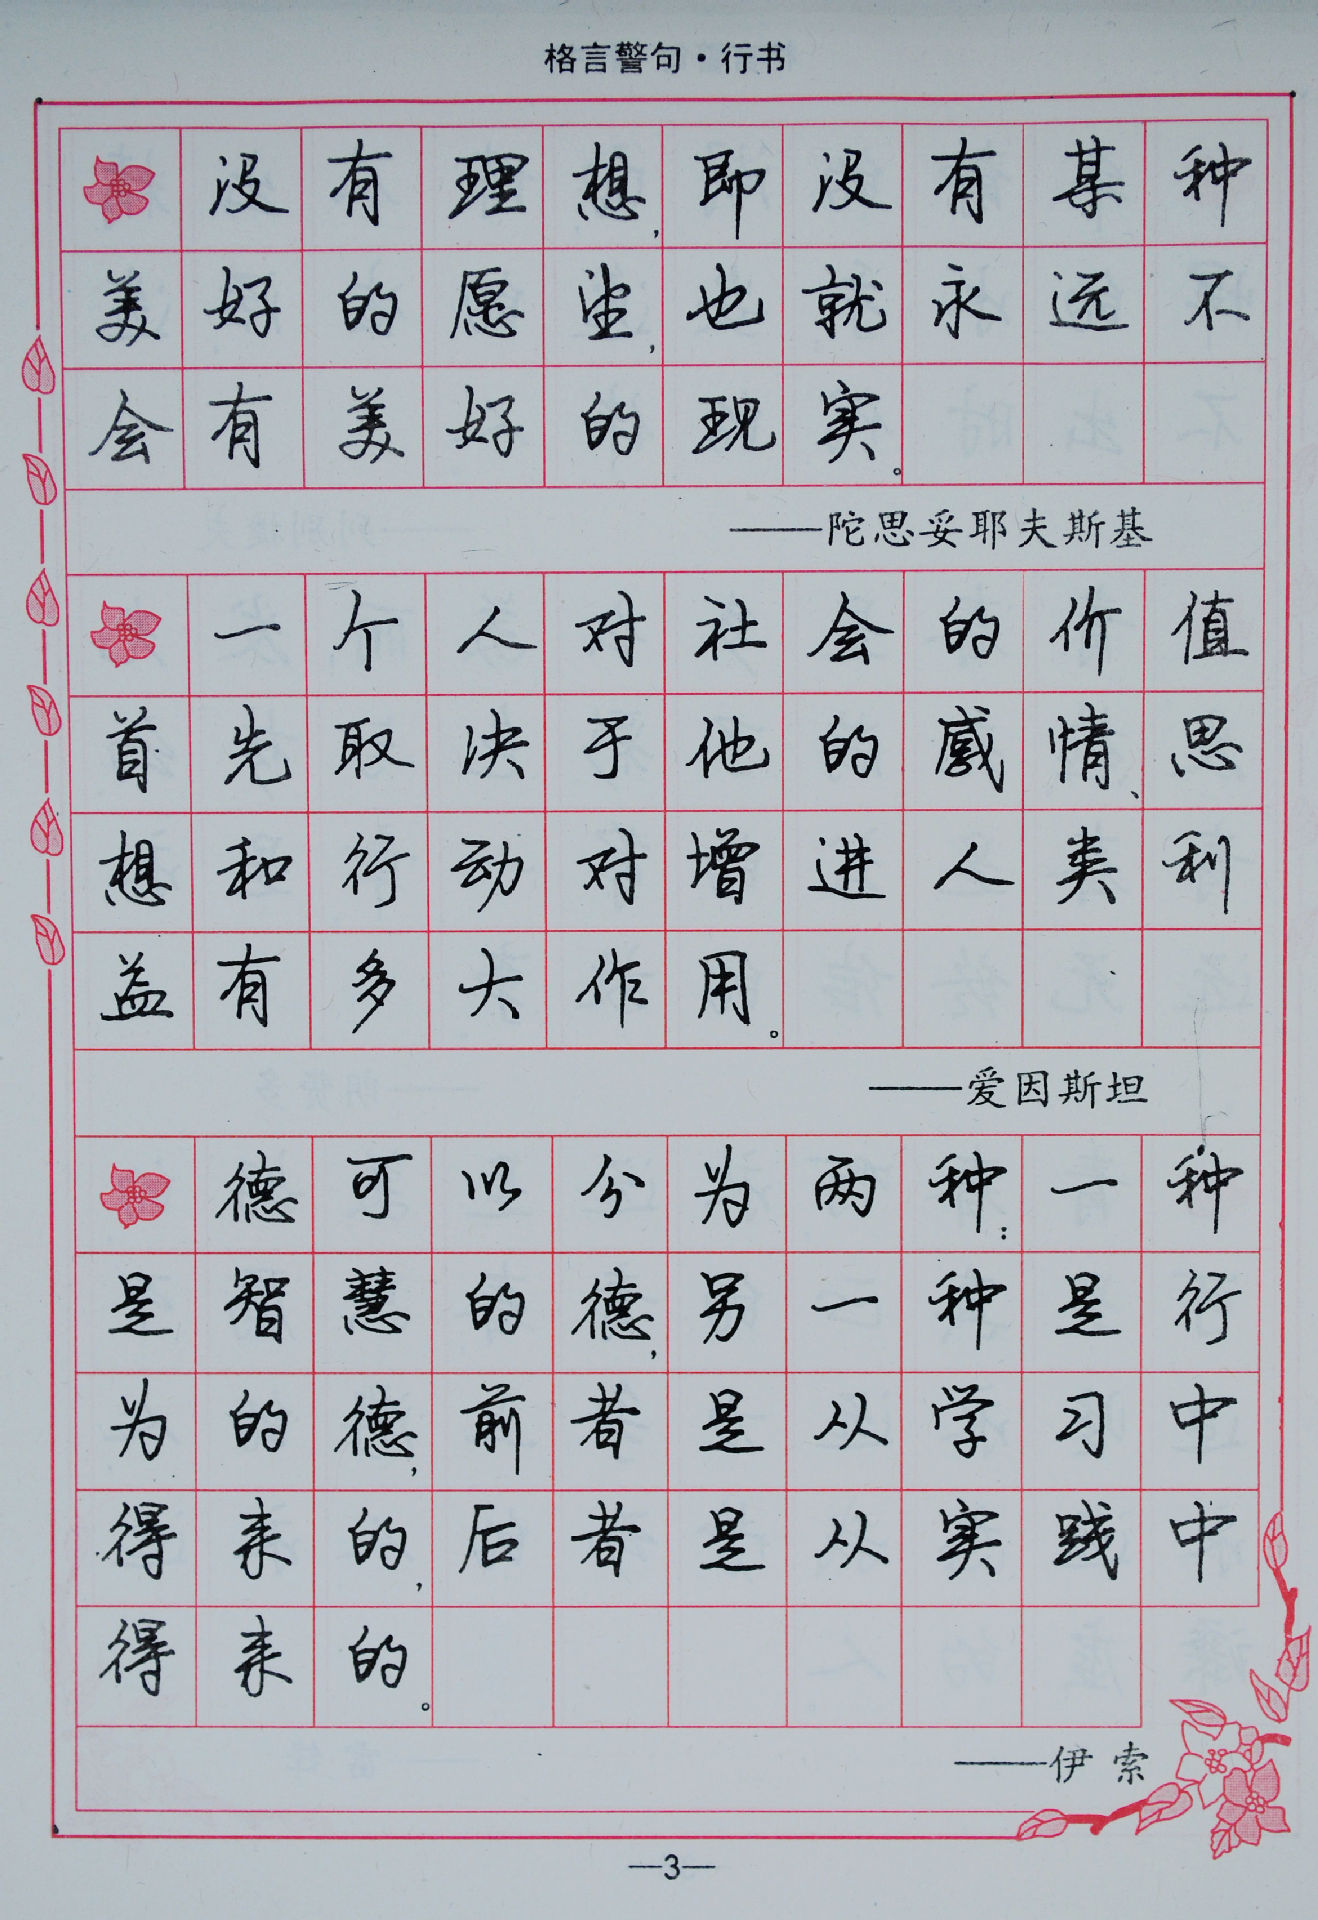 格言警句·行书
没有理想，即没有某种
美好的愿望，也就永远不
会有美好的现实。
——陀思妥耶夫斯基
一个人对社会的价值
首先取决于他的感情、思
想和行动对增进人类利
益有多大作用。
——爱因斯坦
德可以分为两种：一种
是智慧的德，另一种是行
为的德，前者是从学习中
得来的，后者是从实践中
得来的。
——伊索
—3—